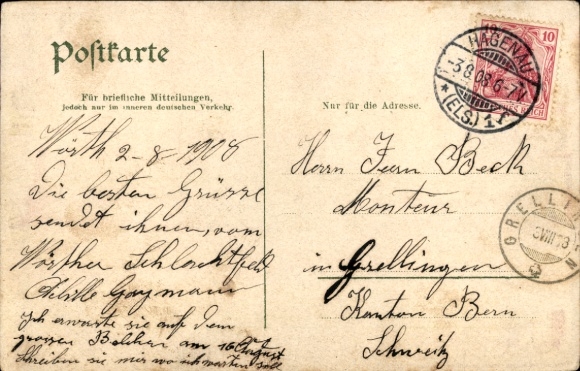 Postkarte
Für briefliche Mitteilungen,
jedoch nur im inneren deutschen Verkehr.
Nur für die Adresse.
10
HAGENAU
-3.8.08.6-7V
* (ELS.) 1 r
REICH
Wörth 2-8-1908
Die besten Grüsse
sendet ihnen, vom
Wörther Schlachtfeld
Achille Gaymann
Ich erwarte sie auf dem
grossen Belchen am 16 August
Schreiben sie mir wo ich warten soll
Herrn Jean Beck
Monteur
in Grellingen
Kanton Bern
Schweiz
GRELLINGEN
VIII